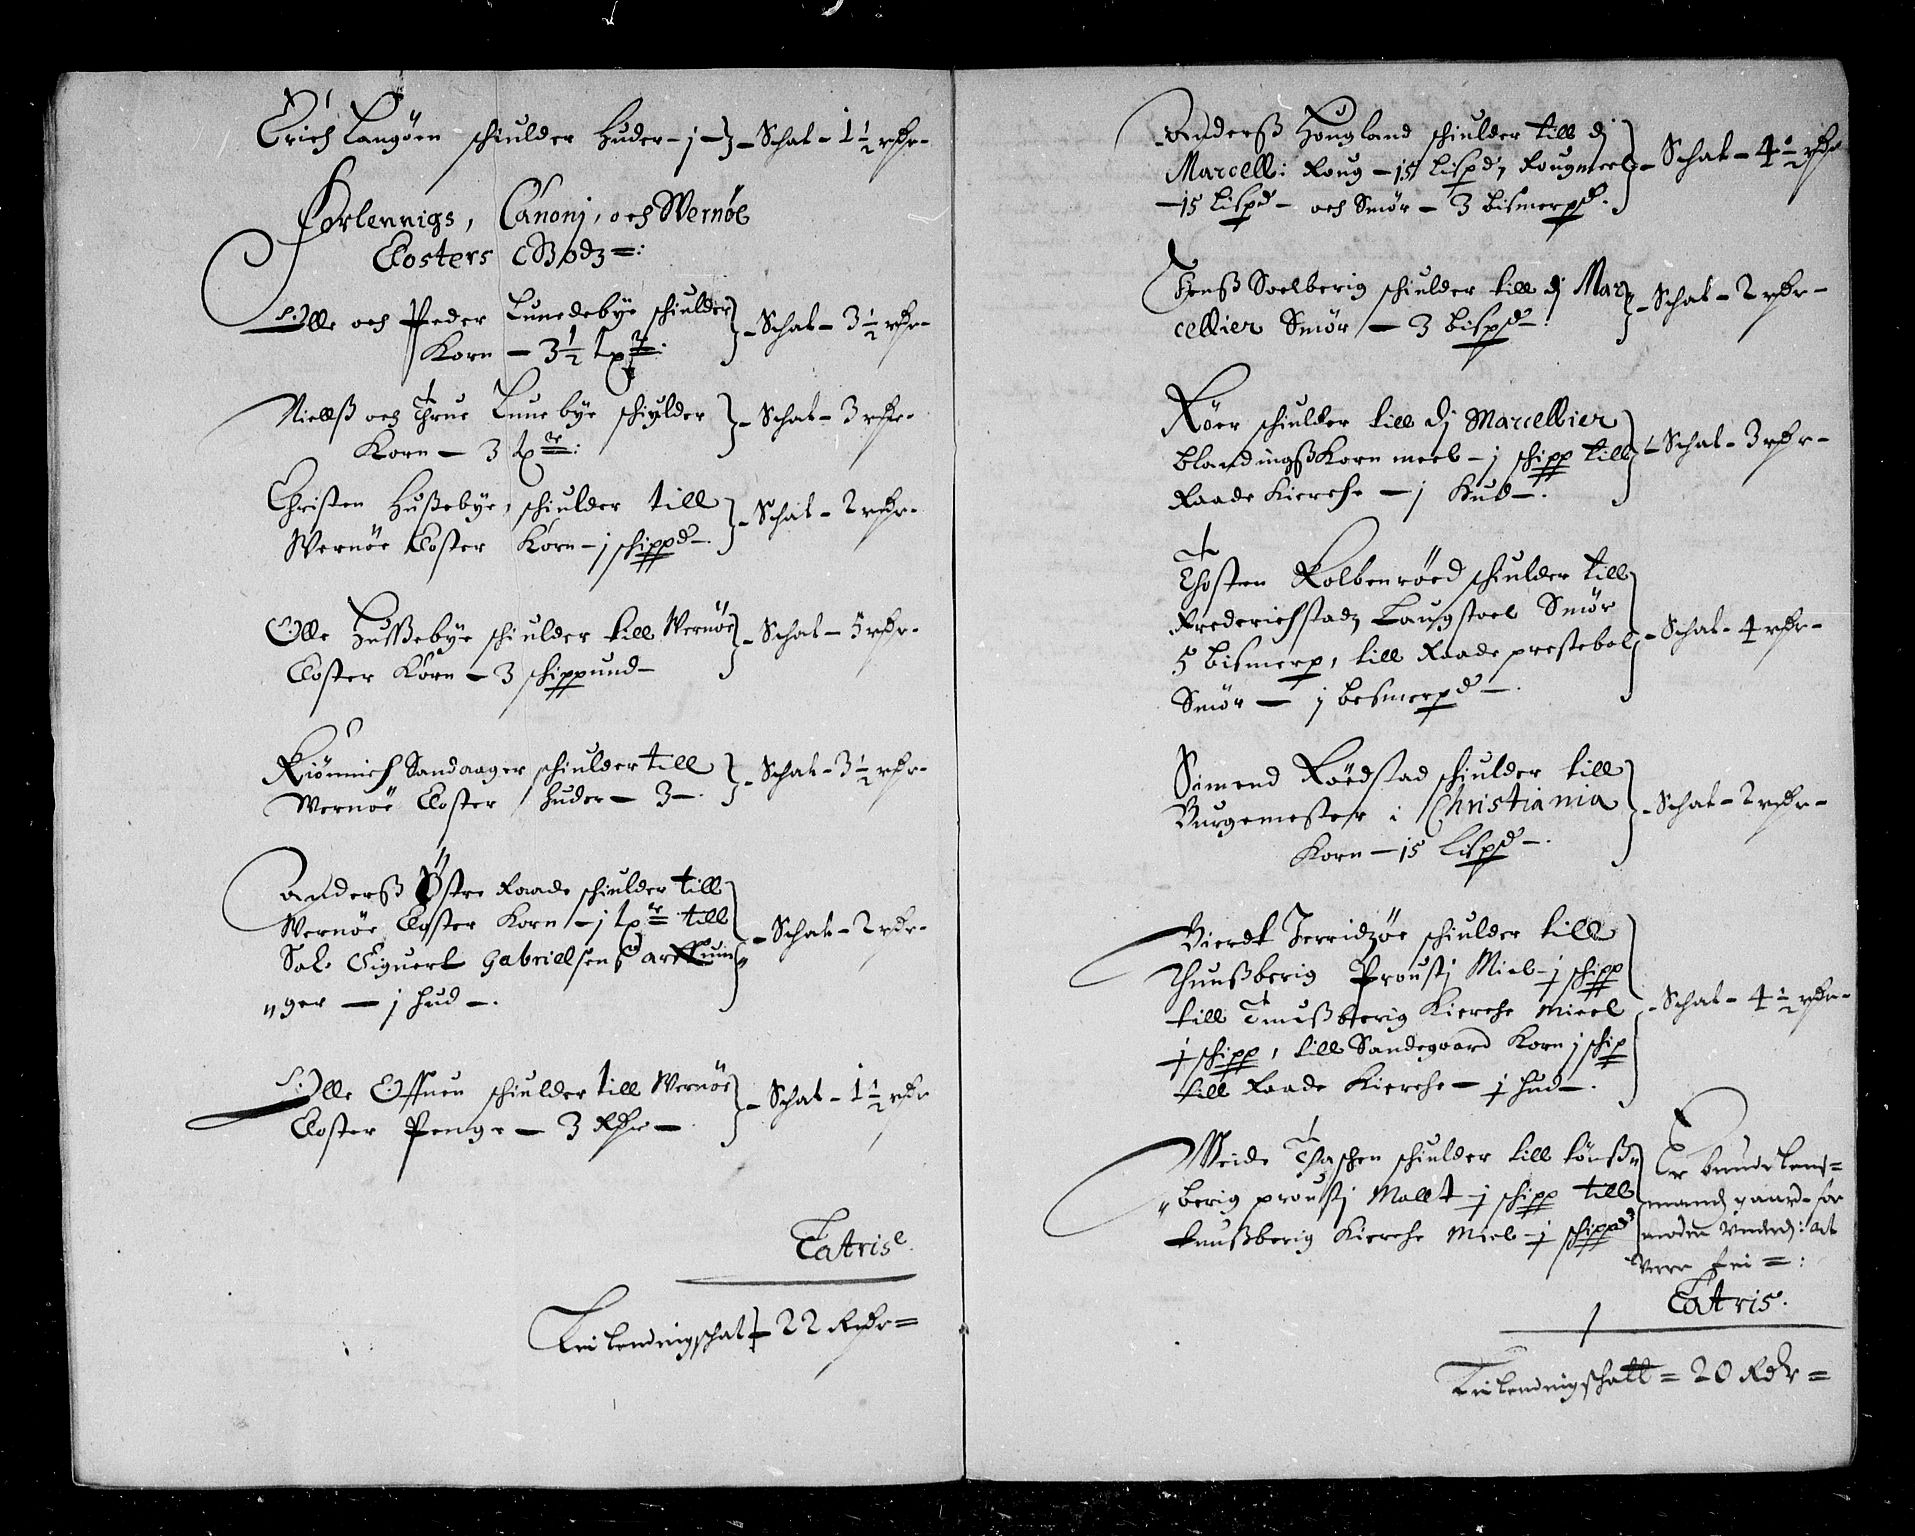 Erich Langöen schiulder Huder - j - Schat - 1½ rdr -
Forlennigs, Canonj, och Wernöe
Closters Godz =:
Olle och Peder Lunedebye schiulder
Korn - 3½ tp: - Schat - 3½ rdr -
Niellß och Thrue Lunebye schiulder
Korn - 3 tp: - Schat - 3 rdr -
Christen Hußebye, schiulder till
Wernöe Closter Korn - j schippd - Schat - 2 rdr -
Olle Hußebye schiulder till Wernöe
Closter Korn - 3 schippund - Schat - 5 rdr -
Sandaager schiulder till
Wernöe Closter huder - 3 - Schat - 3½ rdr -
Anderß Östre Raade schiulder till
Wernöe Closter Korn - j tp till
Sal: Siguert Gabriellsens arffuin
"ger - j hud - Schat - 2 rdr -
Olle schiulder till Wernöe
Closter Penge - 3 Rdr - Schat - 1½ rdr
Latris
Leilendingschat - 22 Rdr =
Anderß Hougland schiulder till dj
Marcelli: Roug - 15 Lispd, Rougmeel
- 15 Lispd - och Smör - 3 bismerpd. - Schat - 4½ rdr
Jenß Soelberig schiulder till dj Mar
cellier Smör - 3 bispd - Schat - 2 rdr -
Röer schiulder till dj Marcellier
blandingßkorn meel - j schipp till
Raade Kierche - j Hud - Schat - 3 rdr -
Thosten Kolbenröed schiulder till
Frederichstadz Laugstoel Smör
5 bismerp, till Raade prestebol
Smör - j besmerpd - Schat - 4 rdr -
Simend Röedstad schiulder till
Burgemester i Christiania
Korn - 15 Lispd - Schat - 2 rdr -
schiulder till
Thunßberig Proustj Miel - j schipp
till Tunßberig Kierche Mieel
j schipp, till Sandegaard Korn j schip
till Raade Kierche - j hud - Schat - 4½ rdr -
schiulder till tönß"
"berig proustj Mallt - j schipp till
tunßberig Kierche Miel - j schippd
Er bunde Lens=
mandz gaard for
moder at
vere frj =:
Latris.
Leilendingschatt = 20 Rdr =